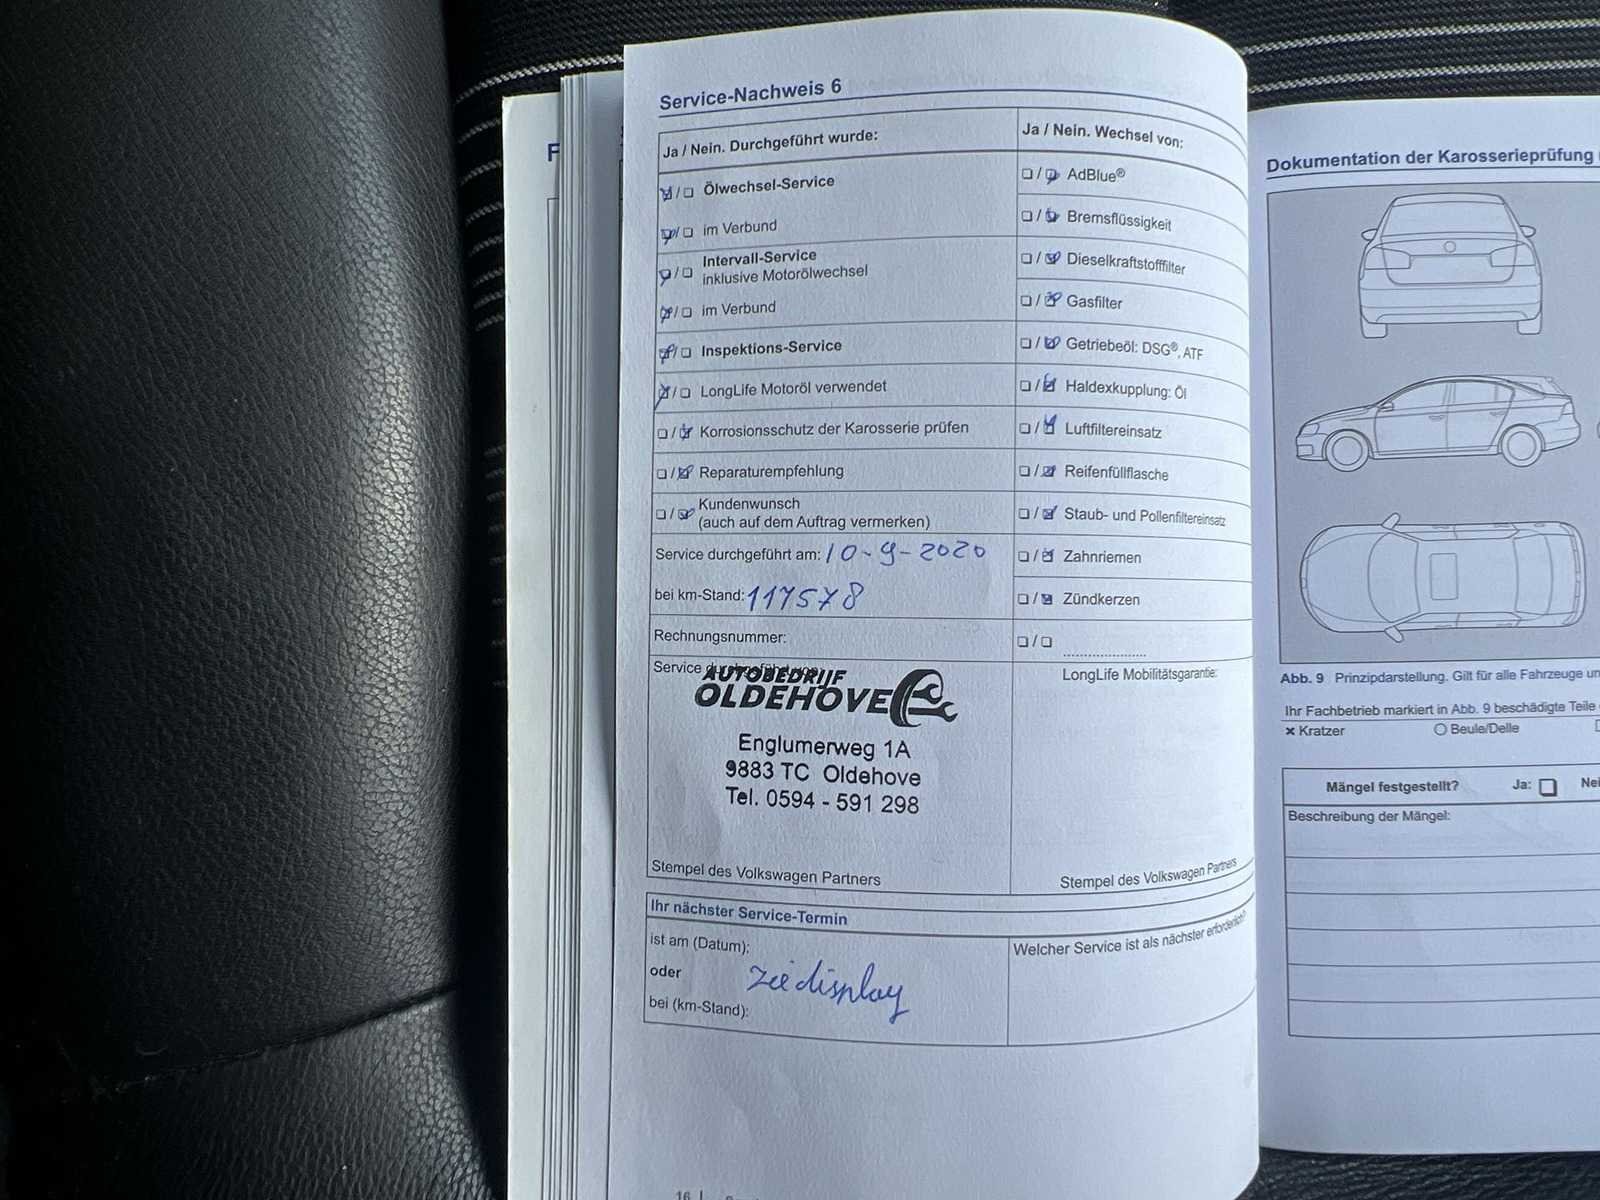 Service-Nachweis 6
Ja / Nein. Durchgeführt wurde:
☑/☐ Ölwechsel-Service
☑/☐ im Verbund
☑/☐ Intervall-Service
inklusive Motorölwechsel
☑/☐ im Verbund
☑/☐ Inspektions-Service
☑/☐ LongLife Motoröl verwendet
☐/☑ Korrosionsschutz der Karosserie prüfen
☐/☑ Reparaturempfehlung
☐/☑ Kundenwunsch
(auch auf dem Auftrag vermerken)
Service durchgeführt am: 10-9-2020
bei km-Stand: 117578
Rechnungsnummer:
Service durchgeführt von:
AUTOBEDRIJF
OLDEHOVE
Englumerweg 1A
9883 TC Oldehove
Tel. 0594 - 591 298
Stempel des Volkswagen Partners
Ja / Nein. Wechsel von:
☐/☑ AdBlue®
☐/☑ Bremsflüssigkeit
☐/☑ Dieselkraftstofffilter
☐/☑ Gasfilter
☐/☑ Getriebeöl: DSG®, ATF
☐/☑ Haldexkupplung: Öl
☐/☑ Luftfiltereinsatz
☐/☑ Reifenfüllflasche
☐/☑ Staub- und Pollenfiltereinsatz
☐/☑ Zahnriemen
☐/☑ Zündkerzen
☐/☐ ....................
LongLife Mobilitätsgarantie:
Stempel des Volkswagen Partners
Ihr nächster Service-Termin
ist am (Datum):
oder
zie display
bei (km-Stand):
Welcher Service ist als nächster erforderlich?
16
Dokumentation der Karosserieprüfung
Abb. 9 Prinzipdarstellung. Gilt für alle Fahrzeuge
Ihr Fachbetrieb markiert in Abb. 9 beschädigte Teile
× Kratzer
○ Beule/Delle
Mängel festgestellt? Ja: ☐
Beschreibung der Mängel: